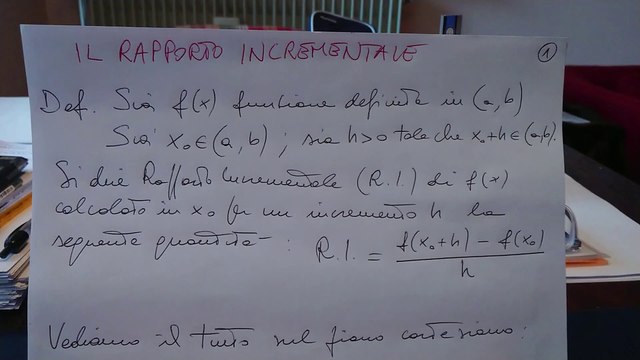 IL RAPPORTO INCREMENTALE
1
Def. Sia f(x) funzione definita in (a,b)
Sia x₀∈(a,b); sia h>0 tale che x₀+h∈(a,b).
Si dice Rapporto Incrementale (R.I.) di f(x)
calcolato in x₀ per un incremento h la
seguente quantità: R.I. = f(x₀+h) - f(x₀) / h
Vediamo il tutto sul piano cartesiano: